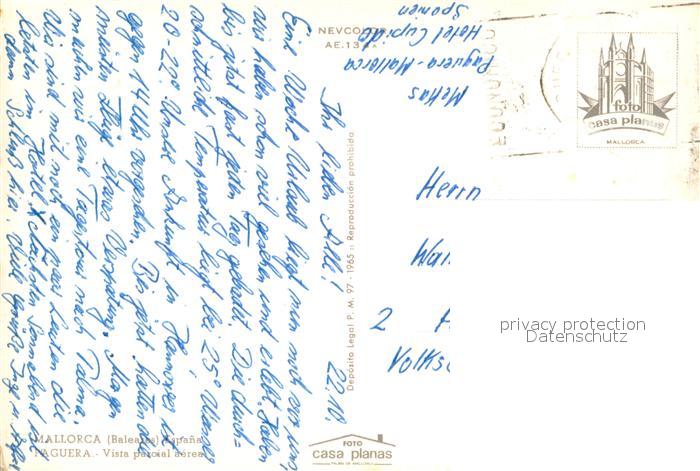 NEVCOLOR
AE.13
Ihr lieben Alle!
22.10.
Eine Woche Urlaub liegt nun noch vor uns,
wir haben schon viel gesehen und erlebt. Haben
bis jetzt fast jeden Tag gebadet. Die durch=
schnittliche Temperatur liegt bei 25° Wasser
20-22°. Unsere Ankunft in Hannover ist
gegen 14 Uhr vorgesehen. Bis jetzt hatten die
meisten Flüge etwas Verspätung. Morgen
machen wir eine Tagestour nach Palma.
Wir sind mit noch ein paar Leuten die
letzten im Hotel
dann Schluß hier. Viele Grüße
Mekas
Paguera-Mallorca
Hotel Cupido
Spanien
foto
casa planas
MALLORCA
Herrn
2
Volks
Depósito Legal P. M. 97 - 1965 :: Reproducción prohibida
MALLORCA (Baleares) España
PAGUERA.- Vista parcial aérea
FOTO
casa planas
PALMA DE MALLORCA
privacy protection
Datenschutz